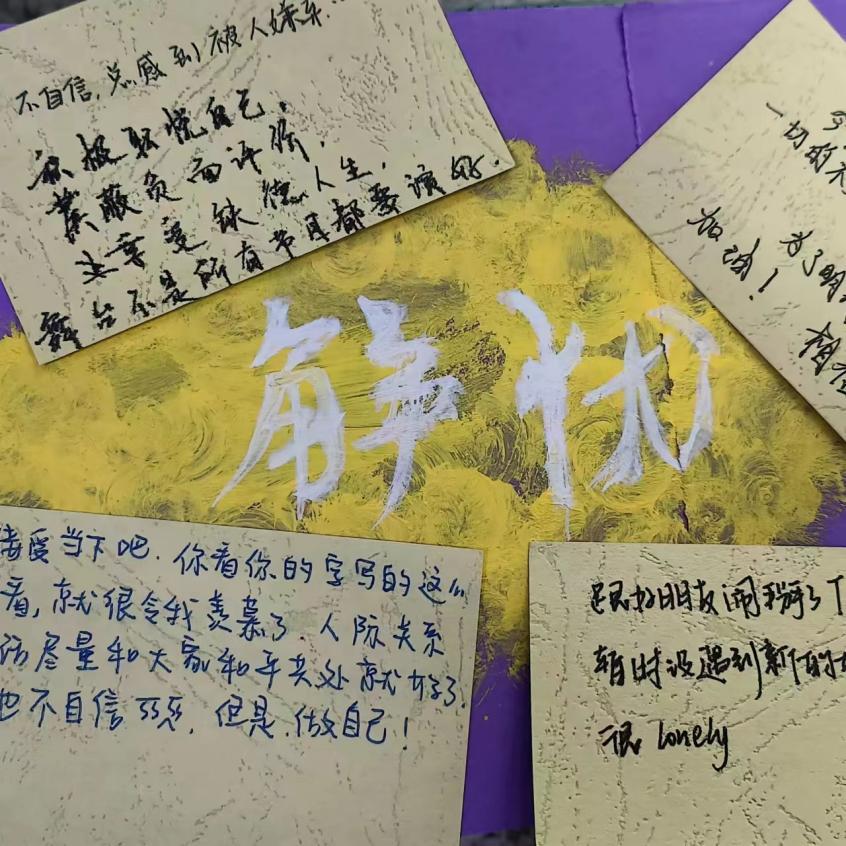 不自信，总感到被人嫌弃
积极取悦自己，
蒙蔽负面评价，
主要受缺德人生，
舞台不是所有节目都要演好．
一切的不
为了明
加油！
解忧
当下吧．你看你的字写的这么
看，就很令我羡慕了．人际关系
尽量和大家和平共处就好了．
也不自信 ，但是，做自己！
跟好朋友闹掰了
暂时没遇到新的
很 lonely